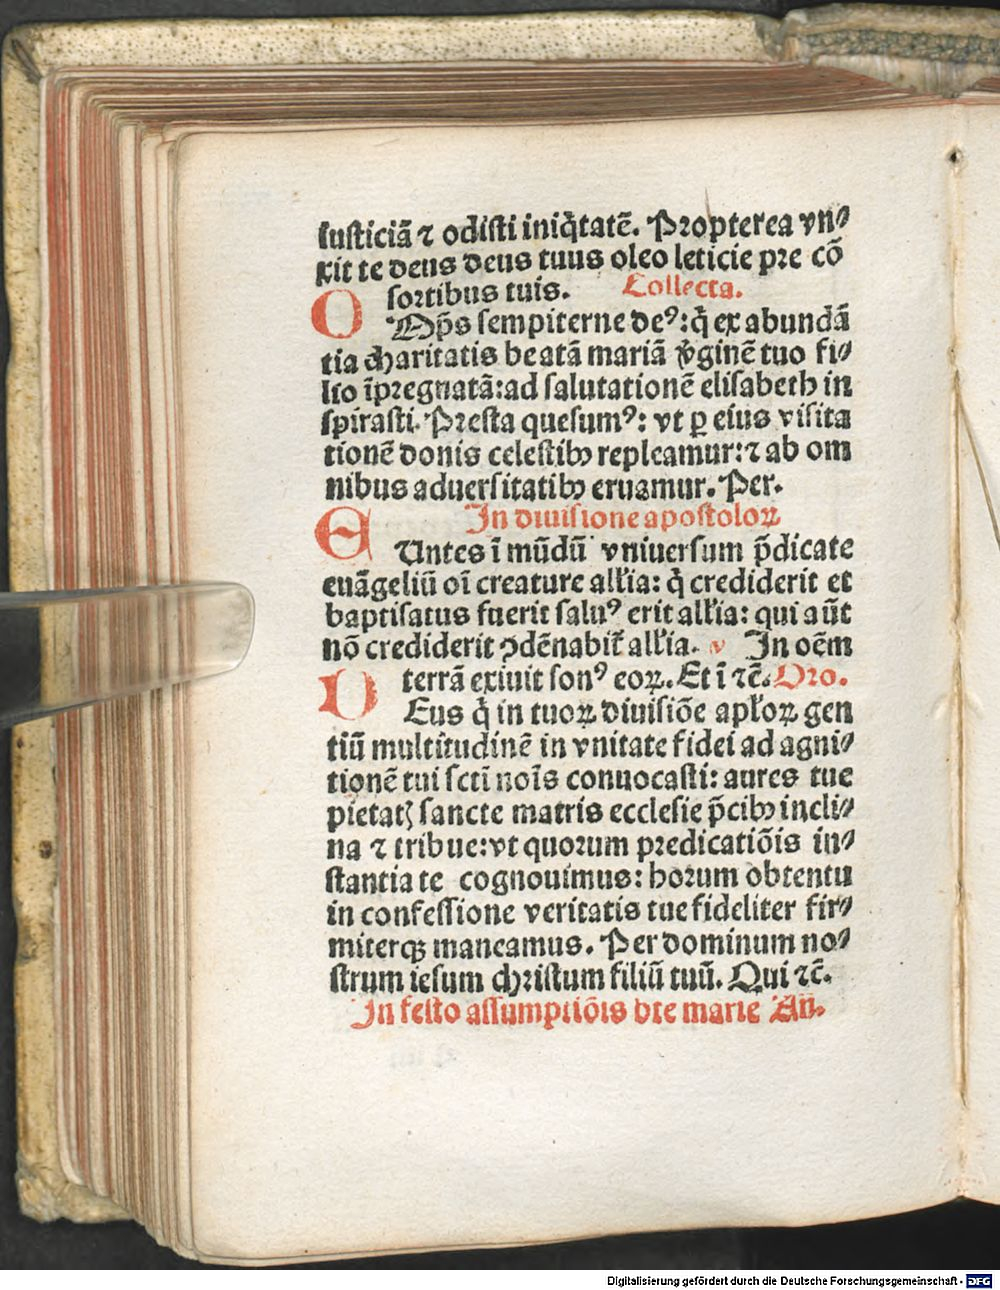 iusticiã ⁊ odisti iniq̃tatẽ. Propterea vn⸗
xit te deus deus tuus oleo leticie pre cõ
sortibus tuis. Collecta.
OMp̃s sempiterne deꝰ: q̃ ex abundã
tia charitatis beatã mariã v̓ginẽ tuo fi⸗
lio ĩpregnatã: ad salutationẽ elisabeth in
spirasti. Presta quesumꝰ: vt ꝑ eius visita
tionẽ donis celestibꝰ repleamur: ⁊ ab om
nibus aduersitatibꝰ eruamur. Per.
In diuisione apostoloꝝ
EUntes ĩ mũdũ vniuersum p̃dicate
euãgeliũ oĩ creature all'ia: q̃ crediderit et
baptisatus fuerit saluꝰ erit all'ia: qui aũt
nõ crediderit ꝯdẽnabit̃ all'ia. v In oẽm
terrã exiuit sonꝰ eoꝝ. Et ĩ ⁊c̃. Oro.
DEus q̃ in tuoꝝ diuisiõe apl'oꝝ gen
tiũ multitudinẽ in vnitate fidei ad agni⸗
tionẽ tui scti noĩs conuocasti: aures tue
pietatꝭ sancte matris ecclesie p̃cibꝰ incli⸗
na ⁊ tribue: vt quorum predicatiõis in⸗
stantia te cognouimus: horum obtentu
in confessione veritatis tue fideliter fir⸗
miterqꝫ maneamus. Per dominum no⸗
strum iesum christum filiũ tuũ. Qui ⁊c̃.
In festo assumptiõis bte marie An.
Digitalisierung gefördert durch die Deutsche Forschungsgemeinschaft - DFG